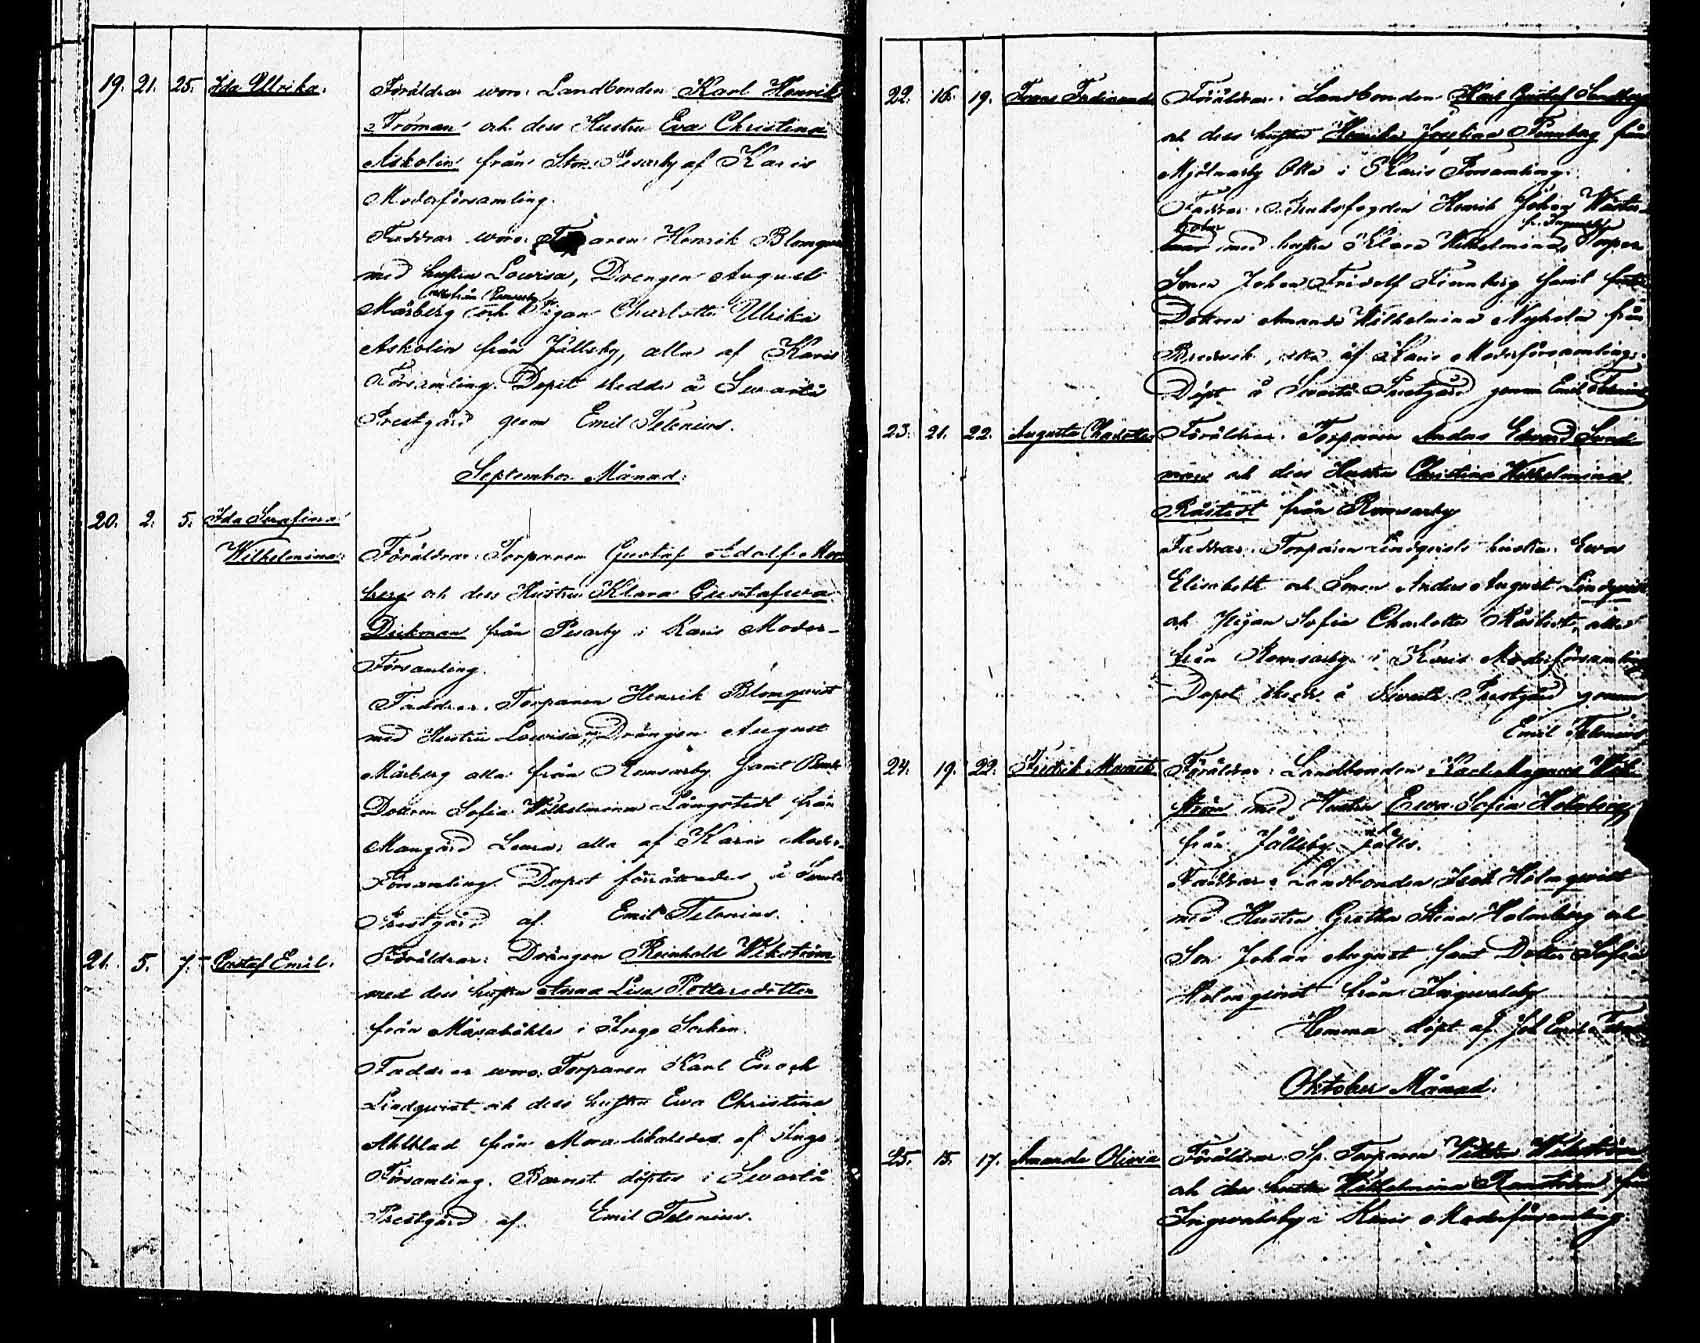 19. 21. 25. Ida Ulrika. Föräldrar woro: Landbonden Karl Henrik
Froman och dess Hustru Eva Christina
Askolin från Stor Pesarby af Karis
Moderförsamling.
Faddrar woro: Henrik Blomqvi
med hustru Lowisa, Drengen August
Mårberg och Pigan Charlotta Ulrika
Askolin från Jällsby, alla af Karis
Församling. Dopet skedde å Swartå
Prestgård genom Emil Telenius.
September Månad:
20. 2. 5. Ida Serafina
Wilhelmina: Föräldrar: Torparen Gustaf Adolf Mår
berg och dess Hustru Klara Gustafwa
Dickman från Pesarby i Karis Moder-
Församling.
Faddrar: Torparen Henrik Blomqvist
med Hustru Lowisa, Drängen August
Mårberg alla från Romsarby samt
Dottren Sofia Wilhelmina Långstedt från
Mangård alla af Karis Moder-
Församling. Dopet förrättades å Swartå
Prestgård af Emil Telenius.
21. 5. 7. Gustaf Emil. Föräldrar: Drängen Reinhold Wikström
med dess hustru Anna Lisa Pettersdotter
från Marsbäkle i Ingo Socken.
Faddrar woro: Torparen Karl Enoch
Lindqwist och dess hustru Ewa Christina
Ahlblad från af Ingo
Församling. Barnet döptes i Swartå
Prestgård af Emil Telenius.
22. 16. 19. Frans Ferdinand Föräldrar: Landbonden Karl Gustaf Sundberg
och dess hustru Henrika Josefina Finnberg från
Mjölnarby Otto i Karis Församling.
Faddrar: Henrik Johan Wäster-
holm med hustru Klara Wilhelmina, Torpare
Sonen Johan Fridolf Finnberg samt
Dottren Amanda Wilhelmina Nyholm från
Bredwik, alla af Karis Moderförsamling.
Döpt å Swartå Prestgård genom Emil Telenius
23. 21. 22. Augusta Charlotta Föräldrar: Torparen Anders Edward Sund-
man och dess Hustru Christina Wilhelmina
Råstedt från Romsarby
Faddrar: Torparen Lindqvists hustru Ewa
Elisabeth och Sonen Anders August Lindqvist
och Pigan Sofia Charlotta Råstedt, alla
från Romsarby i Karis Moderförsamling
Dopet skedde å Swartå Prestgård genom
Emil Telenius
24. 19. 22. Fredrik Mauritz Föräldrar: Landbonden Karl Magnus Wik-
ström med Hustru Ewa Sofia Holmberg
från Jällsby
Faddrar: Landbonden Isak Holmqvist
med Hustru Gretha Stina Holmberg och
Son Johan August samt Dotter Sofia
Holmqvist från Ingwalsby
Hemma döpt af Joh Emil
Oktober Månad:
25. 15. 17. Amanda Oliwia Föräldrar: Sp. Torparen Wiktor Wikström
och dess hustru Wilhelmina Ranström från
Ingwalsby i Karis Moderförsamling